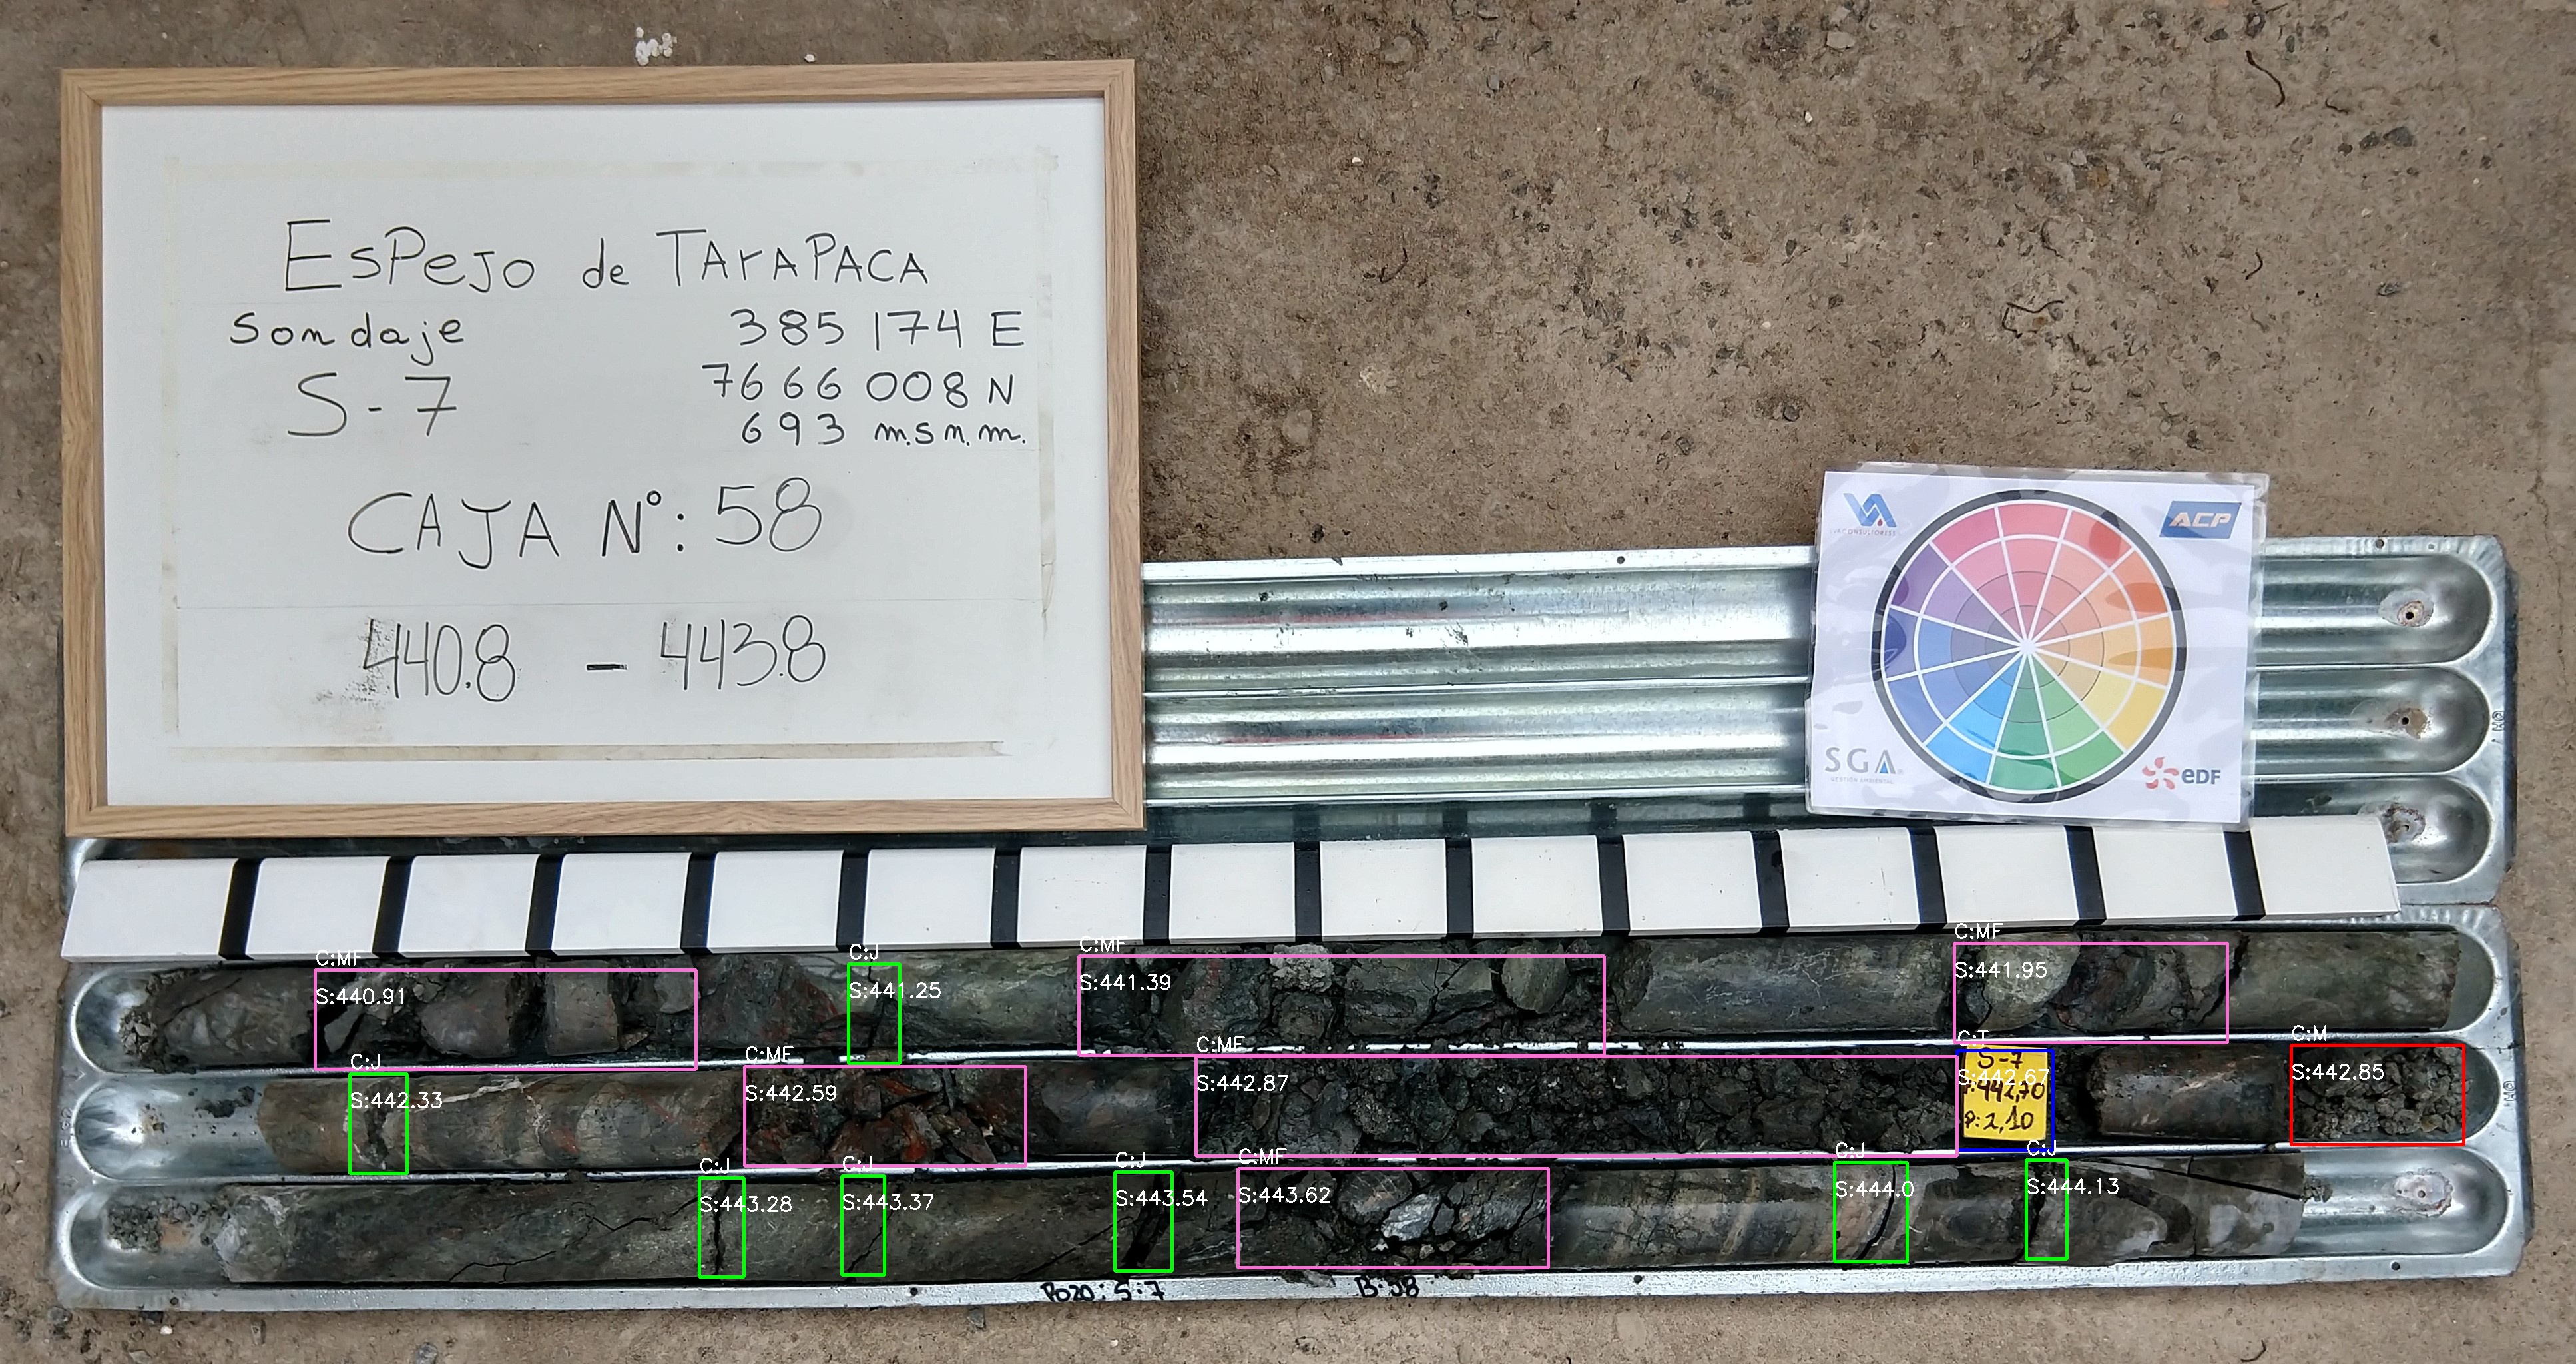 EsPeJo de TArAPACA
Sondaje
385 174 E
S-7
7666 008 N
693 m.s.n.m.
CAJA N°: 58
440.8 - 443.8
ACP
SGA
GESTIÓN AMBIENTAL
eDF
C:MF
S:440.91
C:J
S:441.25
C:MF
S:441.39
C:MF
S:441.95
C:J
S:442.33
C:MF
S:442.59
C:MF
S:442.87
C:T
S:442.67
S-7
442,70
P:2,10
C:M
S:442.85
C:J
S:443.28
C:J
S:443.37
C:J
S:443.54
C:MF
S:443.62
C:J
S:444.0
C:J
S:444.13
Pozo: S:7
B:58